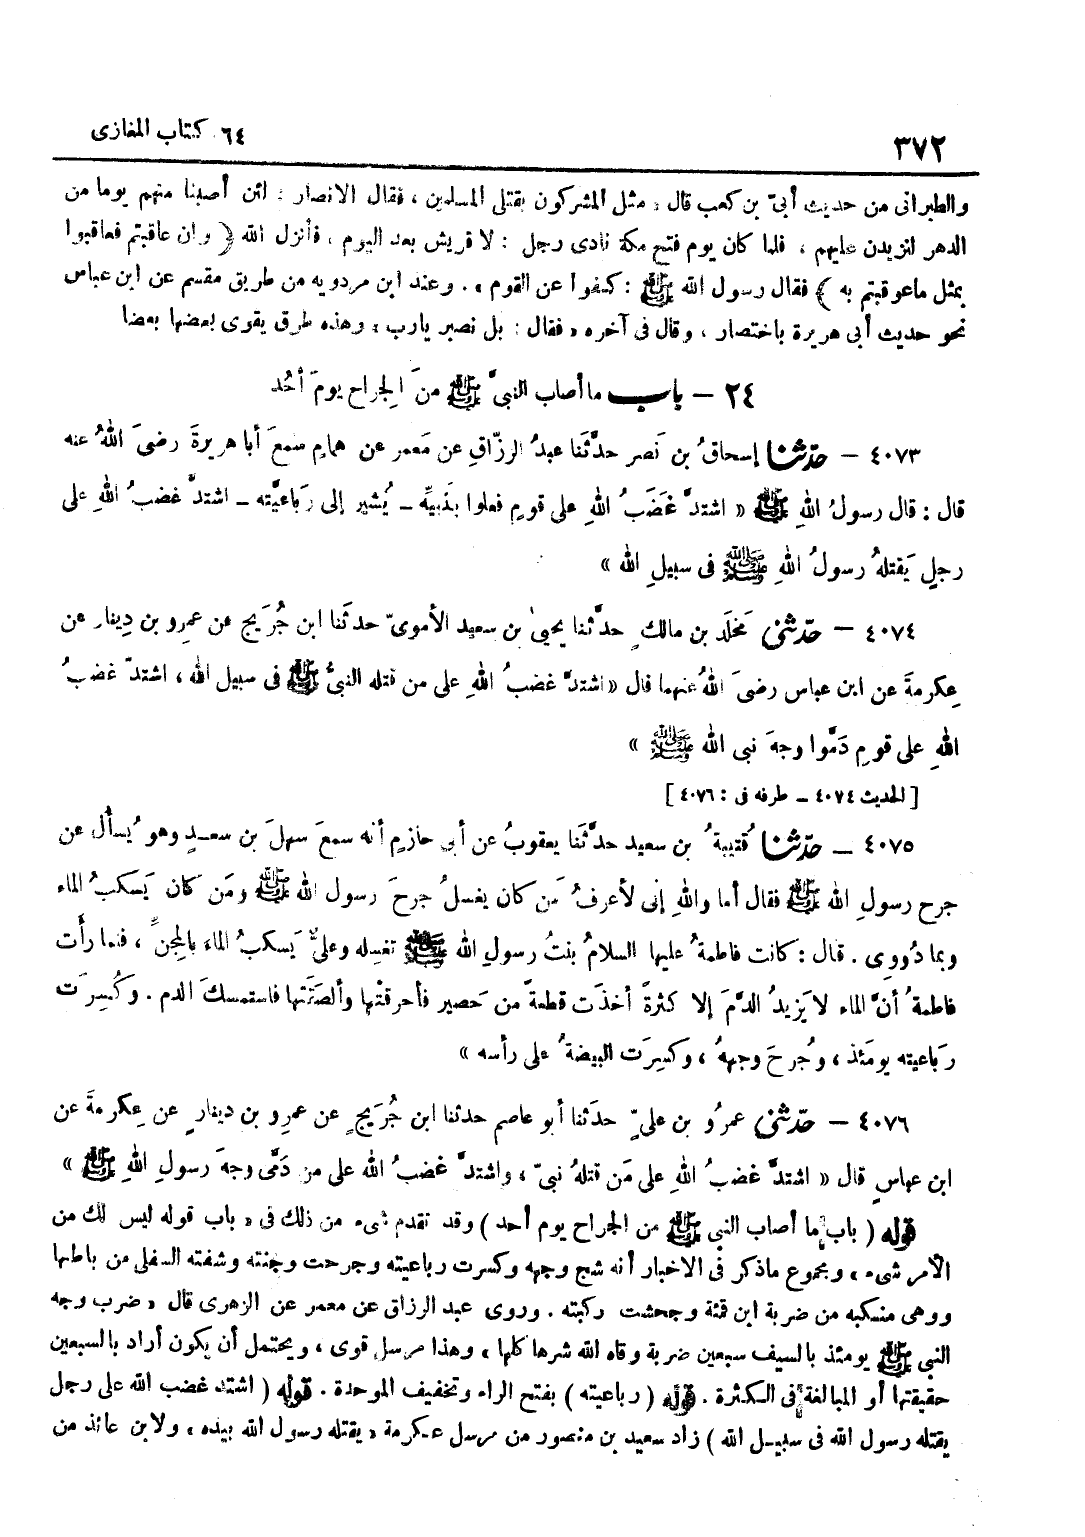 ٣٧٢
٦٤ كتاب المغازى
والطبرانى من حديث أبىّ بن كعب قال « مثل المشركون بقتلى المسلمين ، فقال الانصار : لئن أصبنا منهم يوما من
الدهر لنزيدن عليهم ، فلما كان يوم فتح مكة نادى رجل : لا قريش بعد اليوم ، فأنزل الله ﴿ وان عاقبتم فعاقبوا
بمثل ماعوقبتم به ﴾ فقال رسول الله ﷺ : كفوا عن القوم » . وعند ابن مردويه من طريق مقسم عن ابن عباس
نحو حديث أبى هريرة باختصار ، وقال فى آخره « فقال : بل نصبر يارب » وهذه طرق يقوى بعضها بعضا
٢٤ – باب ما أصاب النبىَّ ﷺ منَ الجِراح يومَ أُحُد
٤٠٧٣ – حدّثنا إسحاقُ بن نَصر حدَّثَنا عبدُ الرزّاقِ عن مَعمر عن همامٍ سَمعَ أبا هريرةَ رضىَ اللهُ عنه
قال : قال رسولُ اللهِ ﷺ « اشتدَّ غَضَبُ اللهِ على قومٍ فعلوا بنَبيِّه – يُشير إلى رَباعيَّته – اشتدَّ غضبُ اللهِ على
رجلٍ يَقتلهُ رسولُ اللهِ ﷺ فى سبيلِ الله »
٤٠٧٤ – حدّثنى مَخلَد بن مالكٍ حدَّثنا يحيىٰ بن سعيد الأموىّ حدثنا ابن جُرَيج عن عمرِو بن دِينار عن
عِكرمةَ عن ابن عباس رضىَ اللهُ عنهما قال « اشتدَّ غضبُ اللهِ على من قتله النبىُّ ﷺ فى سبيل الله ، اشتدّ غضبُ
اللهِ على قومٍ دَمَّوا وجهَ نبى الله ﷺ »
[ الحديث ٤٠٧٤ – طرفه فى : ٤٠٧٦ ]
٤٠٧٥ – حدّثنا قُتيبةُ بن سعيد حدَّثَنا يعقوبُ عن أبى حازمٍ أنه سمعَ سهلَ بن سعدٍ وهو يُسأل عن
جرح رسولِ الله ﷺ فقال أما واللهِ إنى لأعرفُ مَن كان يغسلُ جرحَ رسول الله ﷺ ومَن كان يَسكبُ الماء
وبما دُووِى . قال : كانت فاطمةُ عليها السلامُ بنتُ رسولِ الله ﷺ تغسله وعلىٌّ يَسكبُ الماءَ بالمِجنِّ ، فلما رأت
فاطمةُ أنَّ الماء لا يَزيدُ الدَّمَ إلا كثرةً أخذَت قطعةً من حَصير فأحرقَتْها وألصَقَتها فاستمسكَ الدم . وكُسِرَت
رَباعيته يومَئذ ، وجُرحَ وجههُ ، وكسِرَت البيضةُ على رأسه »
٤٠٧٦ – حدّثنى عمرُو بن علىٍّ حدَثنا أبو عاصم حدثنا ابن جُرَيجٍ عن عمرِو بن دينارٍ عن عِكرمةَ عن
ابن عباسٍ قال « اشتدَّ غضبُ اللهِ على مَن قتلهُ نبىّ ، واشتدَّ غضبُ الله على من دَمَّى وجهَ رسولِ اللهِ ﷺ »
قوله ( باب ما أصاب النبي ﷺ من الجراح يوم أحد ) وقد تقدم شىء من ذلك فى « باب قوله ليس لك من
الأمر شىء ، ومجموع ماذكر فى الاخبار أنه شج وجهه وكسرت رباعيته وجرحت وجنته وشفته السفلى من باطنها
ووهى منكبه من ضربة ابن قمئة وجحشت ركبته . وروى عبد الرزاق عن معمر عن الزهرى قال « ضرب وجه
النبى ﷺ يومئذ بالسيف سبعين ضربة وقاه الله شرها كلها ، وهذا مرسل قوى ، ويحتمل أن يكون أراد بالسبعين
حقيقتها أو المبالغة فى الكثرة . قوله ( رباعيته ) بفتح الراء وتخفيف الموحدة . قوله ( اشتد غضب الله على رجل
يقتله رسول الله فى سبيل الله ) زاد سعيد بن منصور من مرسل عكرمة « يقتله رسول الله بيده ، ولابن عائذ من